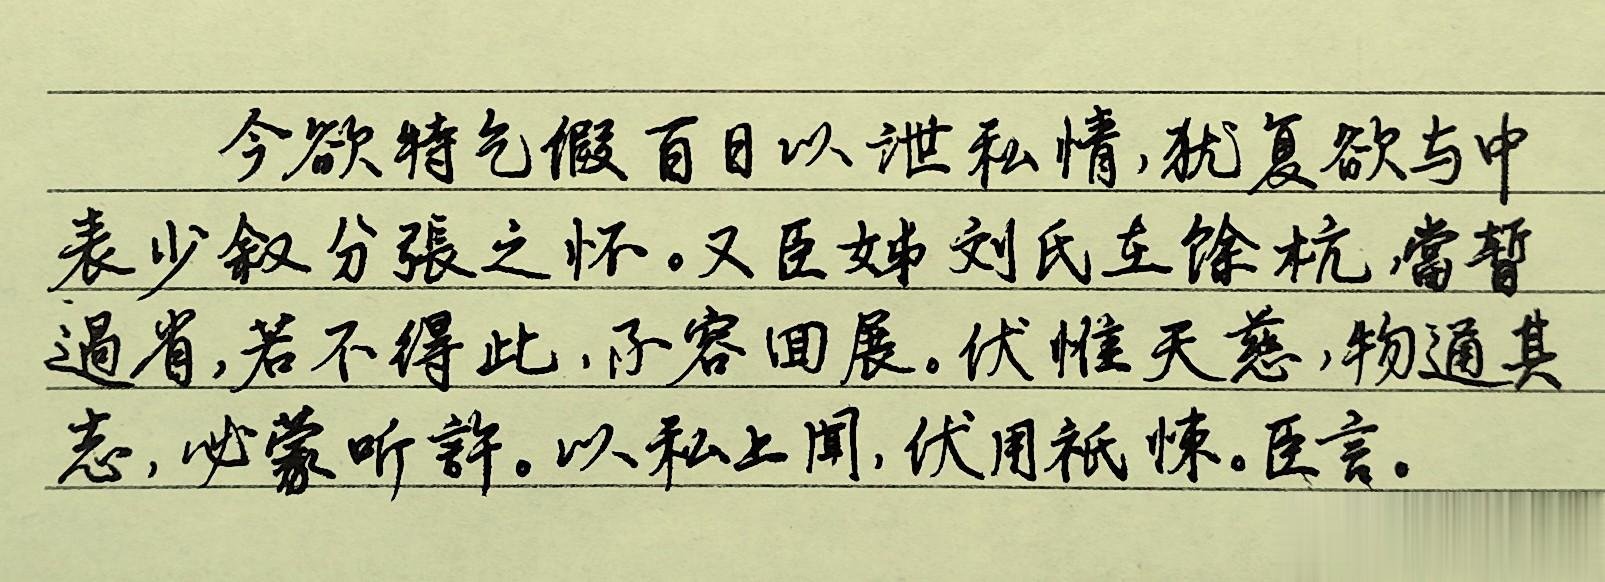 今欲特乞假百日以泄私情,犹复欲与中
表少叙分張之怀。又臣姊刘氏在馀杭,當暂
過省,若不得此,不容回展。伏惟天慈,物通其
志,必蒙听許。以私上聞,伏用祇悚。臣言。